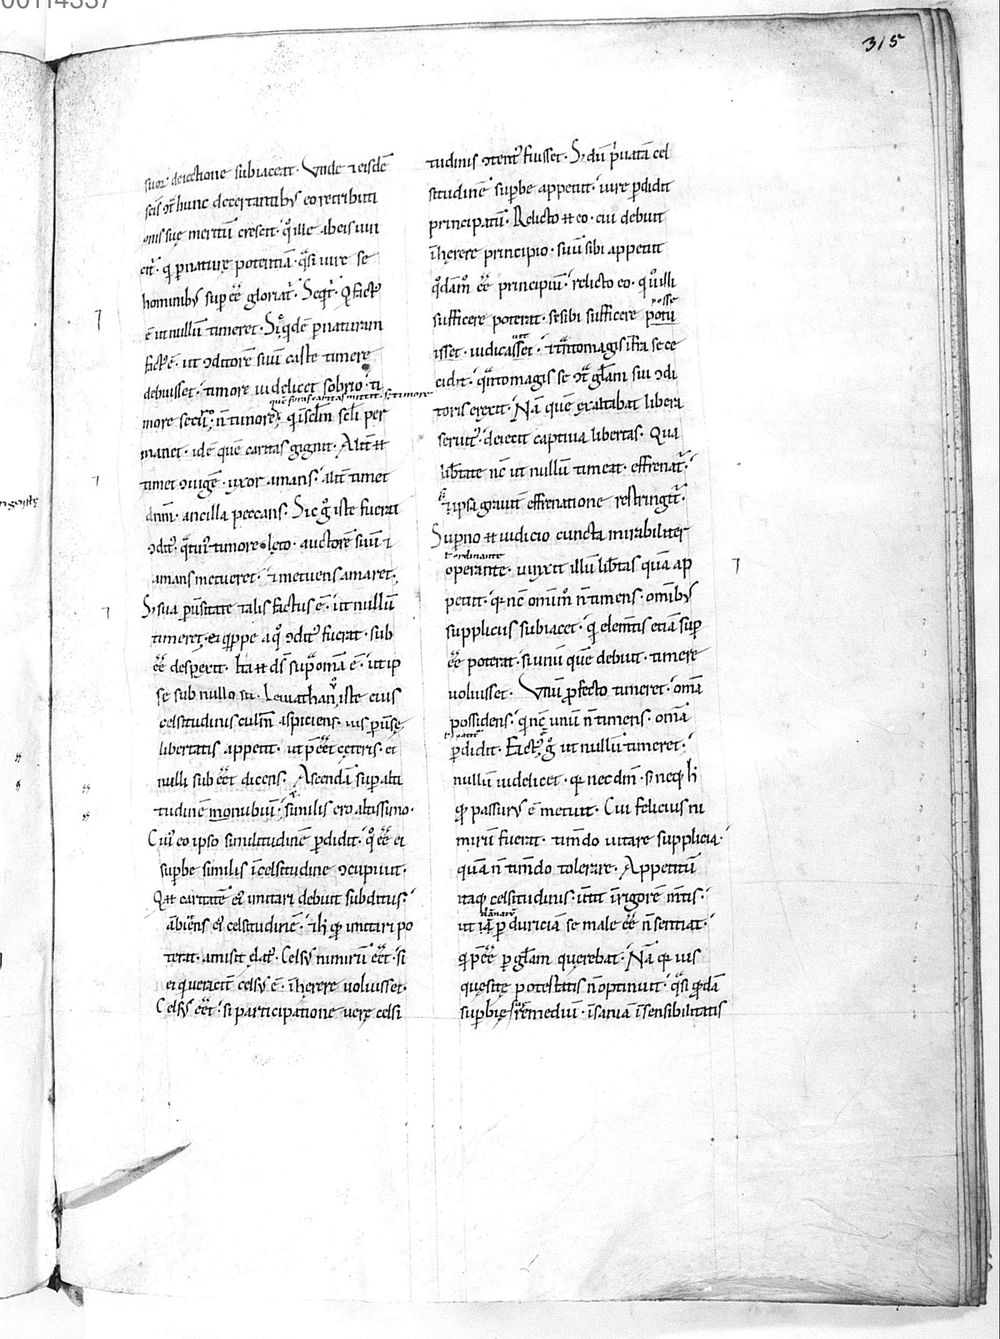 00114337
315
suoꝝ deiectione subiacent. Unde ⁊ eisdē
scīs ꝯt hunc decertantibꝰ eo retributi
onis suę meritū crescit. qͦ ille ab eis uin
cit᷑. q̇ p naturę potentiā. qͣsi iure se
hominibꝰ sup eē gloriat᷑. Seqt᷑. Q fact̄ꝰ
ē ut nullū timeret. Si qͥdē p naturam
fact̄ꝰ ē. ut ꝯditorē suū caste timere
debuisset. timore uidelicet sobrio. ti
que foras caritas mittit. s; timore
more securo. n̄ timore. q̇ in sclm̄ scli per
manet. idē quē caritas gignit. Alit̄ ꝶ
timet ꝯiugē. uxor amans. alit̄ timet
dnm̄. ancilla peccans. Sic g̊ iste fuerat
ꝯdit᷑. qͣtin᷑ timore leto. auctorē suū ⁊
amans metueret. ⁊ metuens amaret.
S; sua puersitate talis factus ē. ut nullū
timeret. ei q̇ppe a qͦ ꝯdit᷑ fuerat. sub
eē despexit. Ita ꝶ dš sup omā ē. ut ip
se sub nullo sit. Leuiathan ū iste eius
celsitudinis culm̄ aspiciens. ius puersę
libertatis appetit. ut p̄eēt cęteris. et
nulli sub eēt dicens. Ascendā sup alti
tudinē monubiuī. similis ero altissimo.
Cui᷑ eo ipso similitudinē ꝑdidit. qͦ eē ei
supbe similis ī celsitudine ꝯcupiuit.
Q ꝶ caritatē ei᷑ imitari debuit subditus.
ābiens ei᷑ celsitudinē. ⁊ h̄ qͦ imitari po
terat. amisit elat᷑. Celsꝰ nimirū eēt. si
ei qui ueracit̄ celsꝰ ē. īherere uoluisset.
Celsꝰ eēt. si participatione uerę celsi
tudinis ꝯtent᷑ fuisset. S; dū p̄uatā cel
situdinē supbe appetit. iure ꝑdidit
principatū. Relicto ꝶ eo. cui debuit
īherere principio. suū sibi appetit
qͦdāmͦ eē principiū. relicto eo. q̇ illi
posse
sufficere poterat. se sibi sufficere potu
isset. iudicasset. ⁊ tāto magis īfra se ce
cidit. qͣnto magis se ꝯt glam̄ sui ꝯdi
toris erexit. Nā quē exaltabat libera
seruit᷑. deiecit captiua libertas. Qua
lib̄tate nc̄ ut nullū timeat. effrenat᷑.
⁊ ipsa grauit̄ effrenatione restringit᷑.
Superno ꝶ iudicio cuncta mirabiliter
ł ordinante
operante. uinxit illū lib̄tas quā ap
petiit. q; nc̄ omiīo n̄ timens. omībꝰ
suppliciis subiacet. q̇ elem̄tis etiā sup
eē poterat. si unū quē debuit. timere
uoluisset. Unū ꝓfecto timeret. omā
possidens. q̇ nc̄ unū n̄ timens. omā
ꝑdidit. Fact᷑ g̊ ut nullū timeret.
nullū uidelicet. q; nec dm̄. s; neq; h̄
qͦ passurꝰ ē metuit. Cui felicius ni
mirū fuerat. tim̄do uitare supplicia.
quā n̄ tim̄do tolerare. Appetitū
itaq; celsitudinis. ūtit ī rigorē m̄tis.
ut iā ꝑ duriciā se male eē n̄ sentiat.
q̇ p̄eē ꝑ glam̄ querebat. Nā q; ius
quesitę potestatis n̄ optinuit. qͣsi qͦdā
supbię remediū. īsania īsensibilitatis